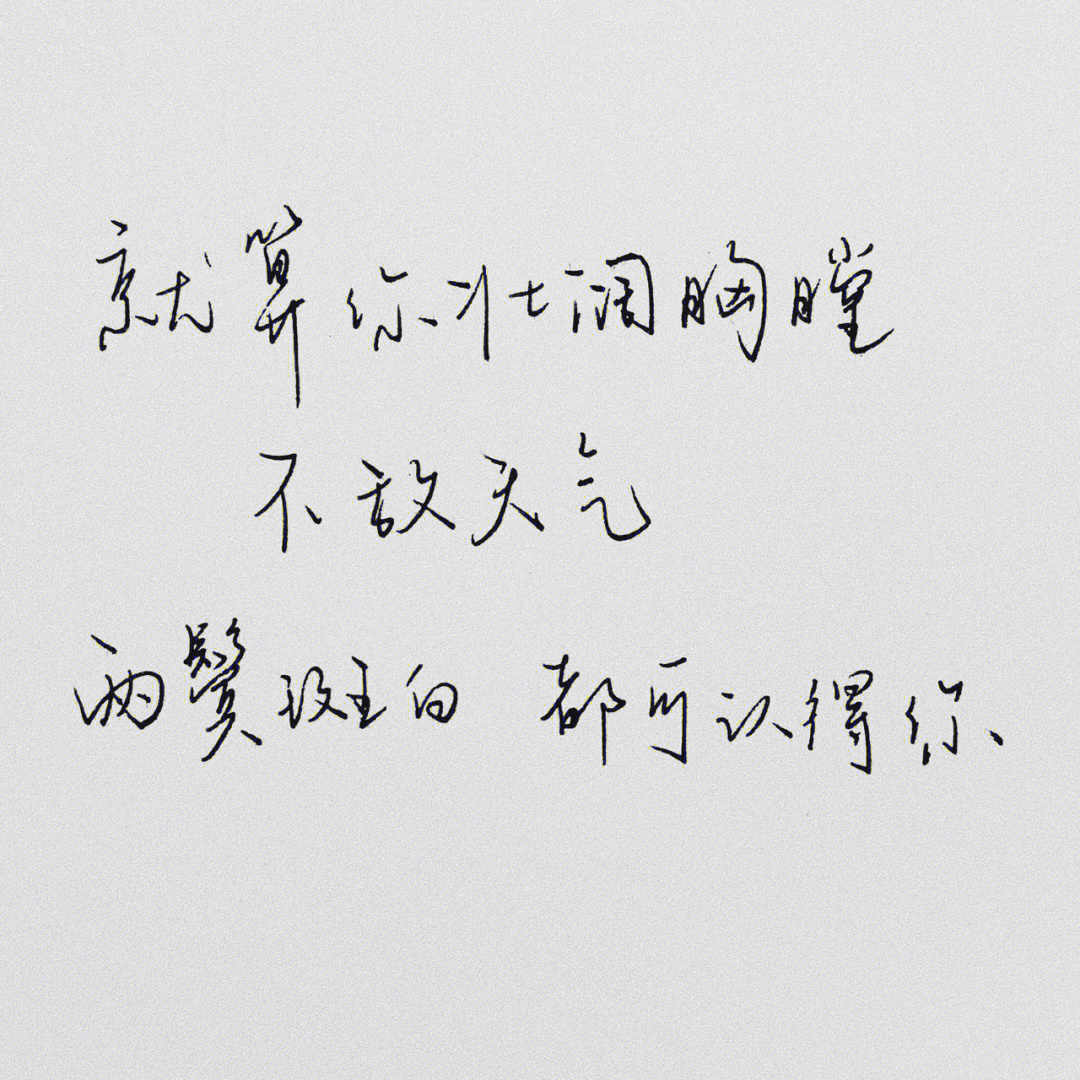 就算你壮阔胸膛
不敌天气
两鬓斑白 都可认得你